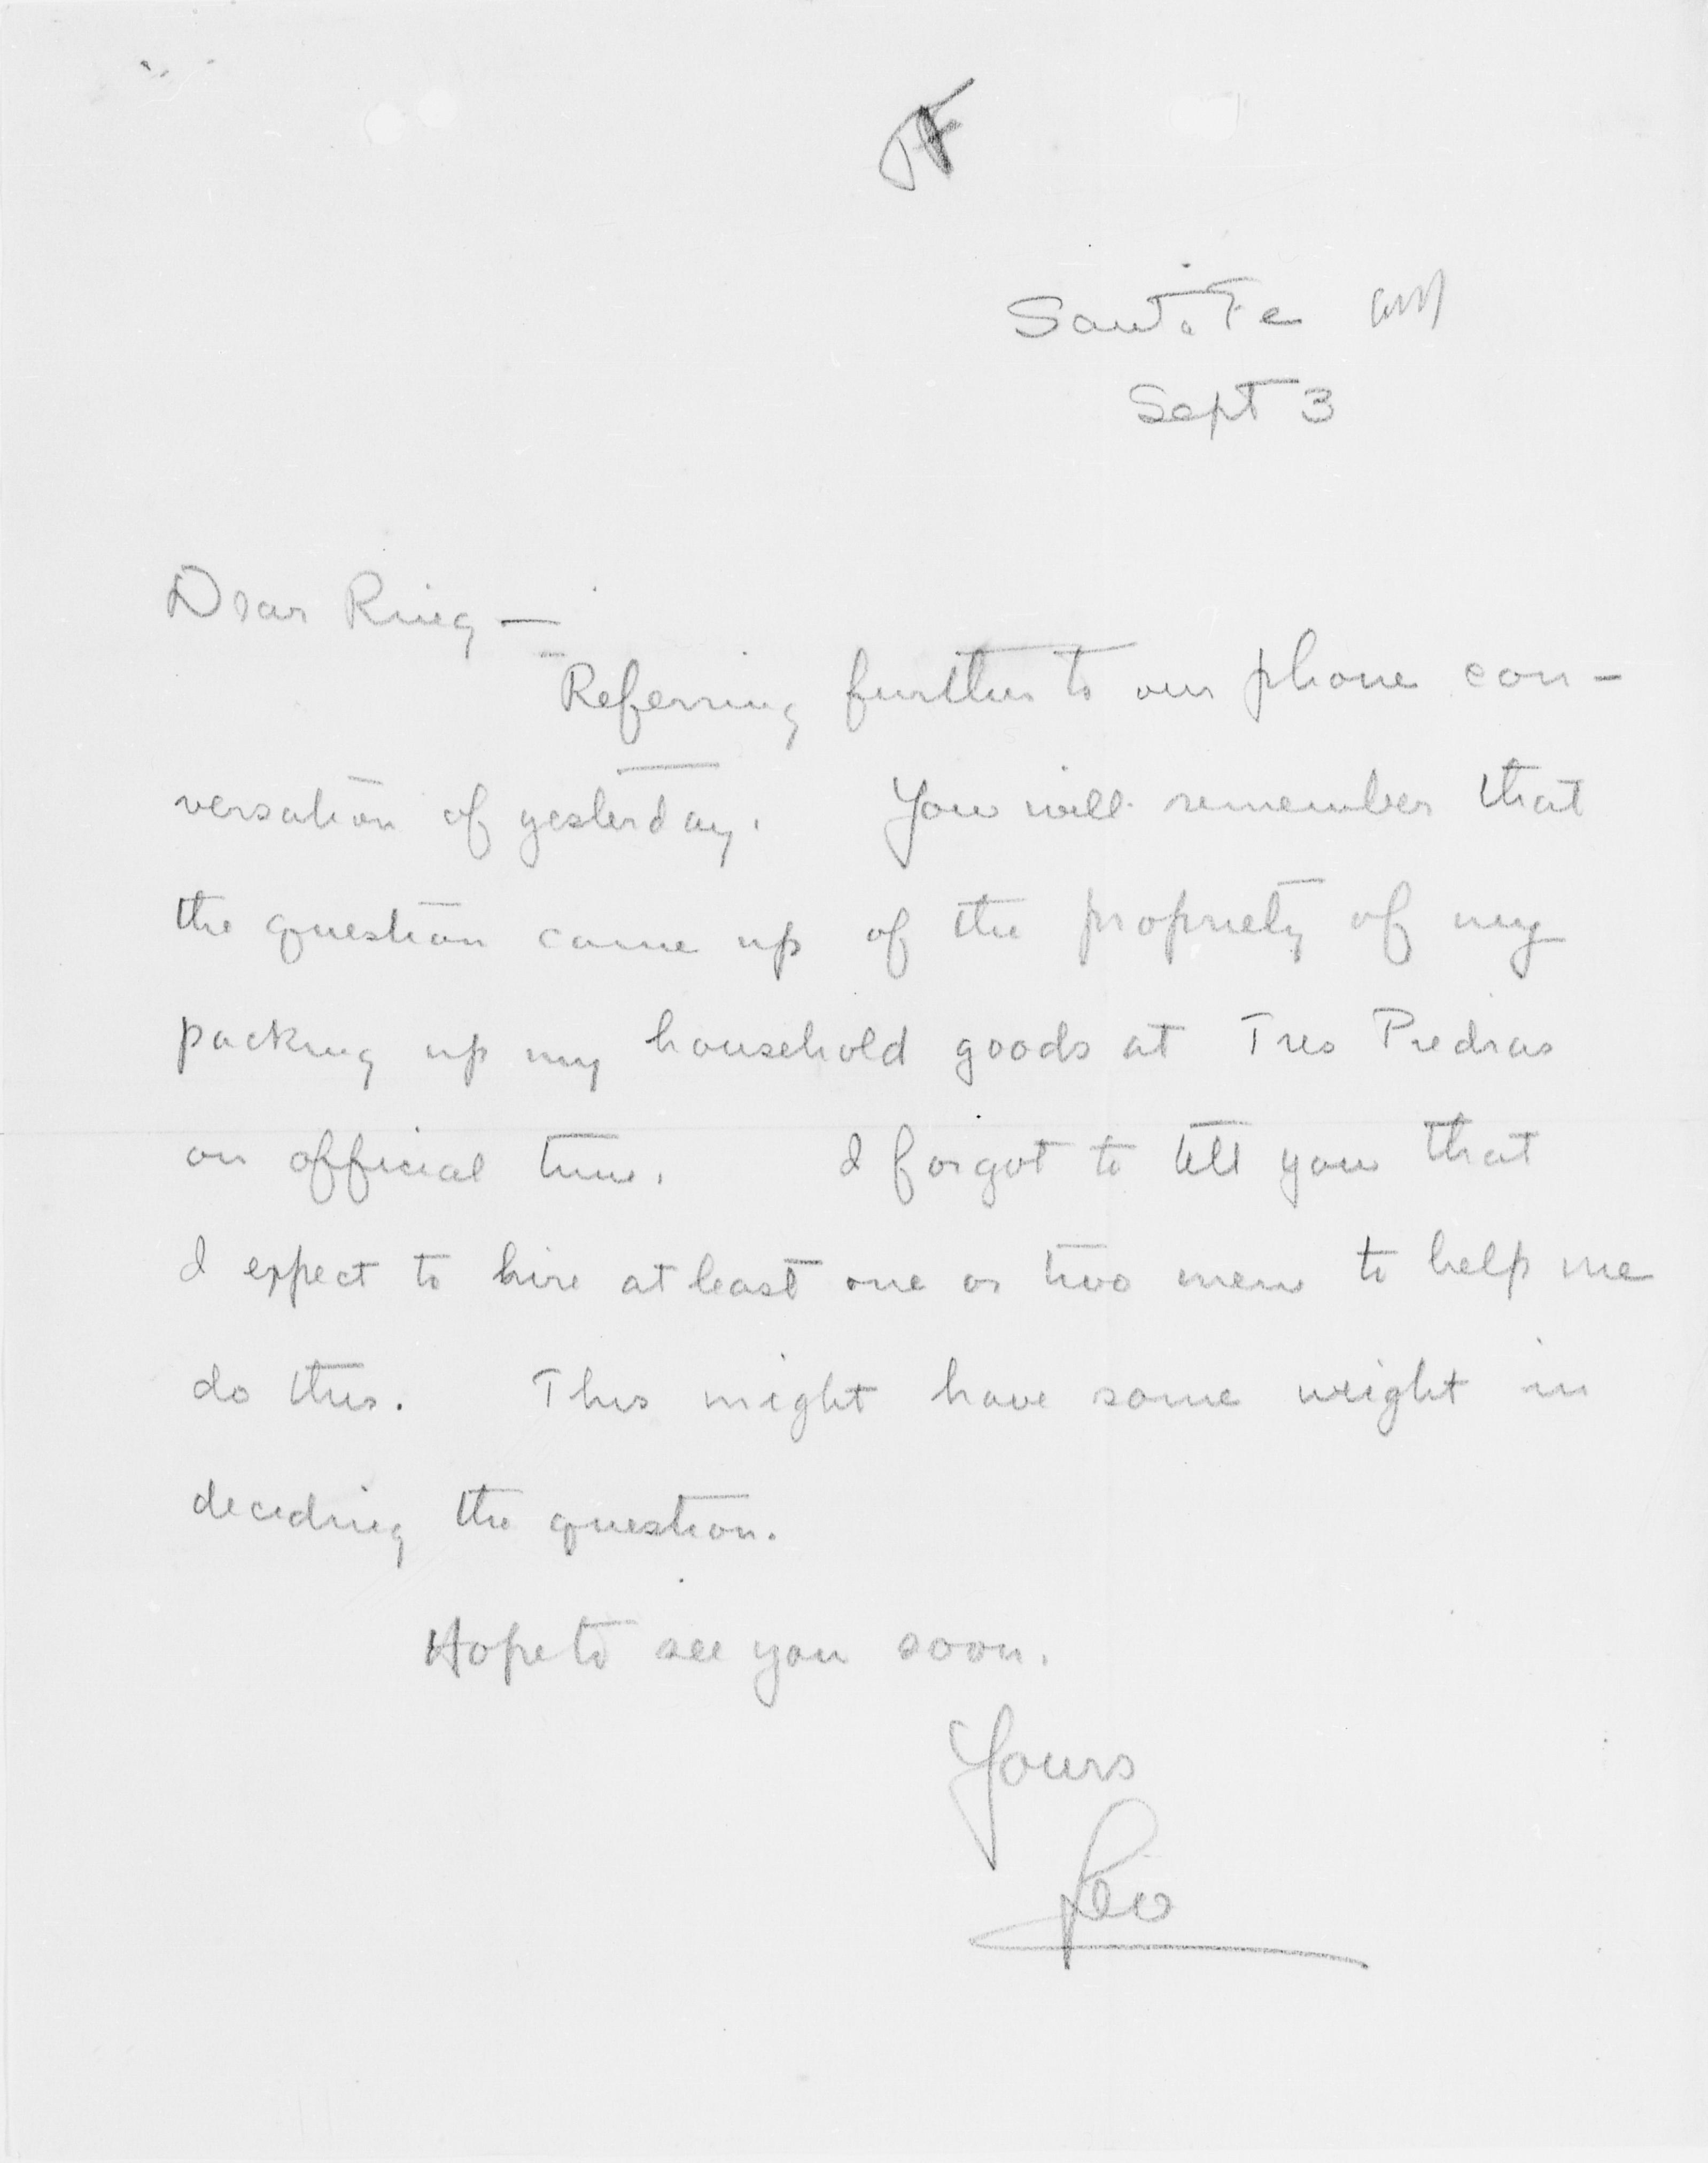 Santa Fe
Sept 3
Dear Ring —
Referring further to our phone con-
versation of yesterday. You will remember that
the question came up of the propriety of my
packing up my household goods at Tres Piedras
on official time. I forgot to tell you that
I expect to hire at least one or two men to help me
do this. This might have some weight in
deciding the question.
Hope to see you soon.
Yours
Leo